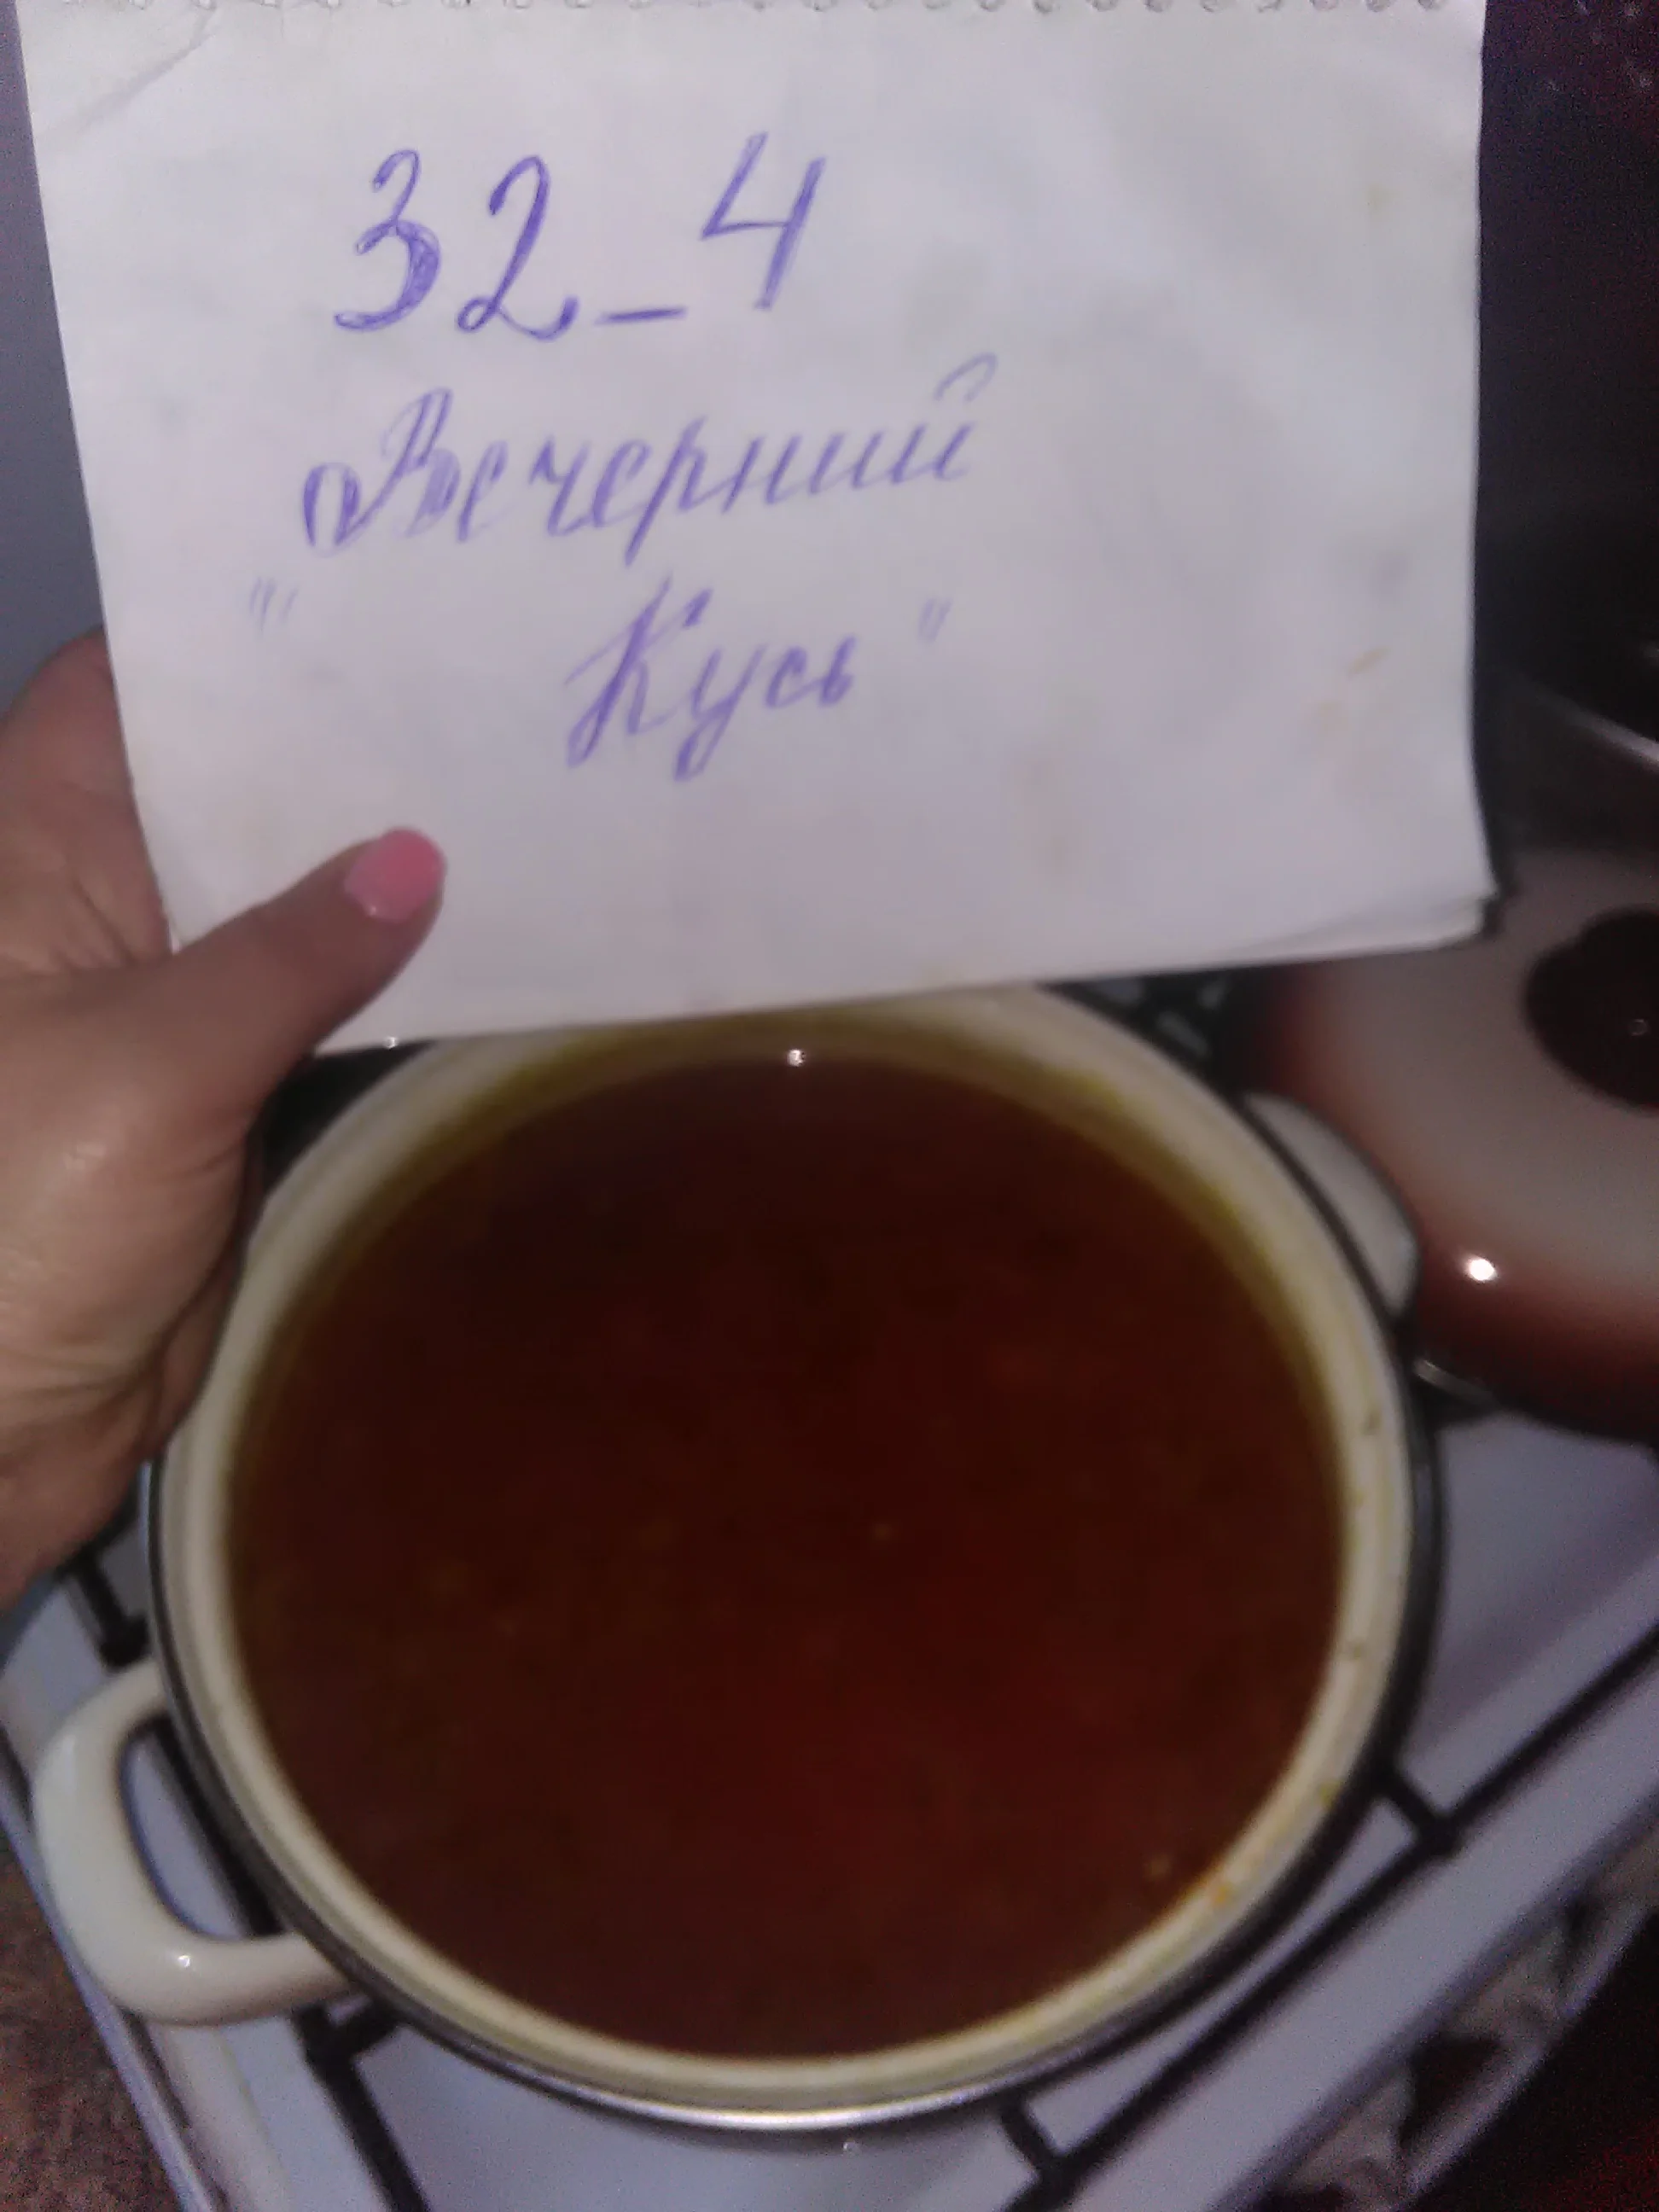 32_4
Вечерний
" Кусь "